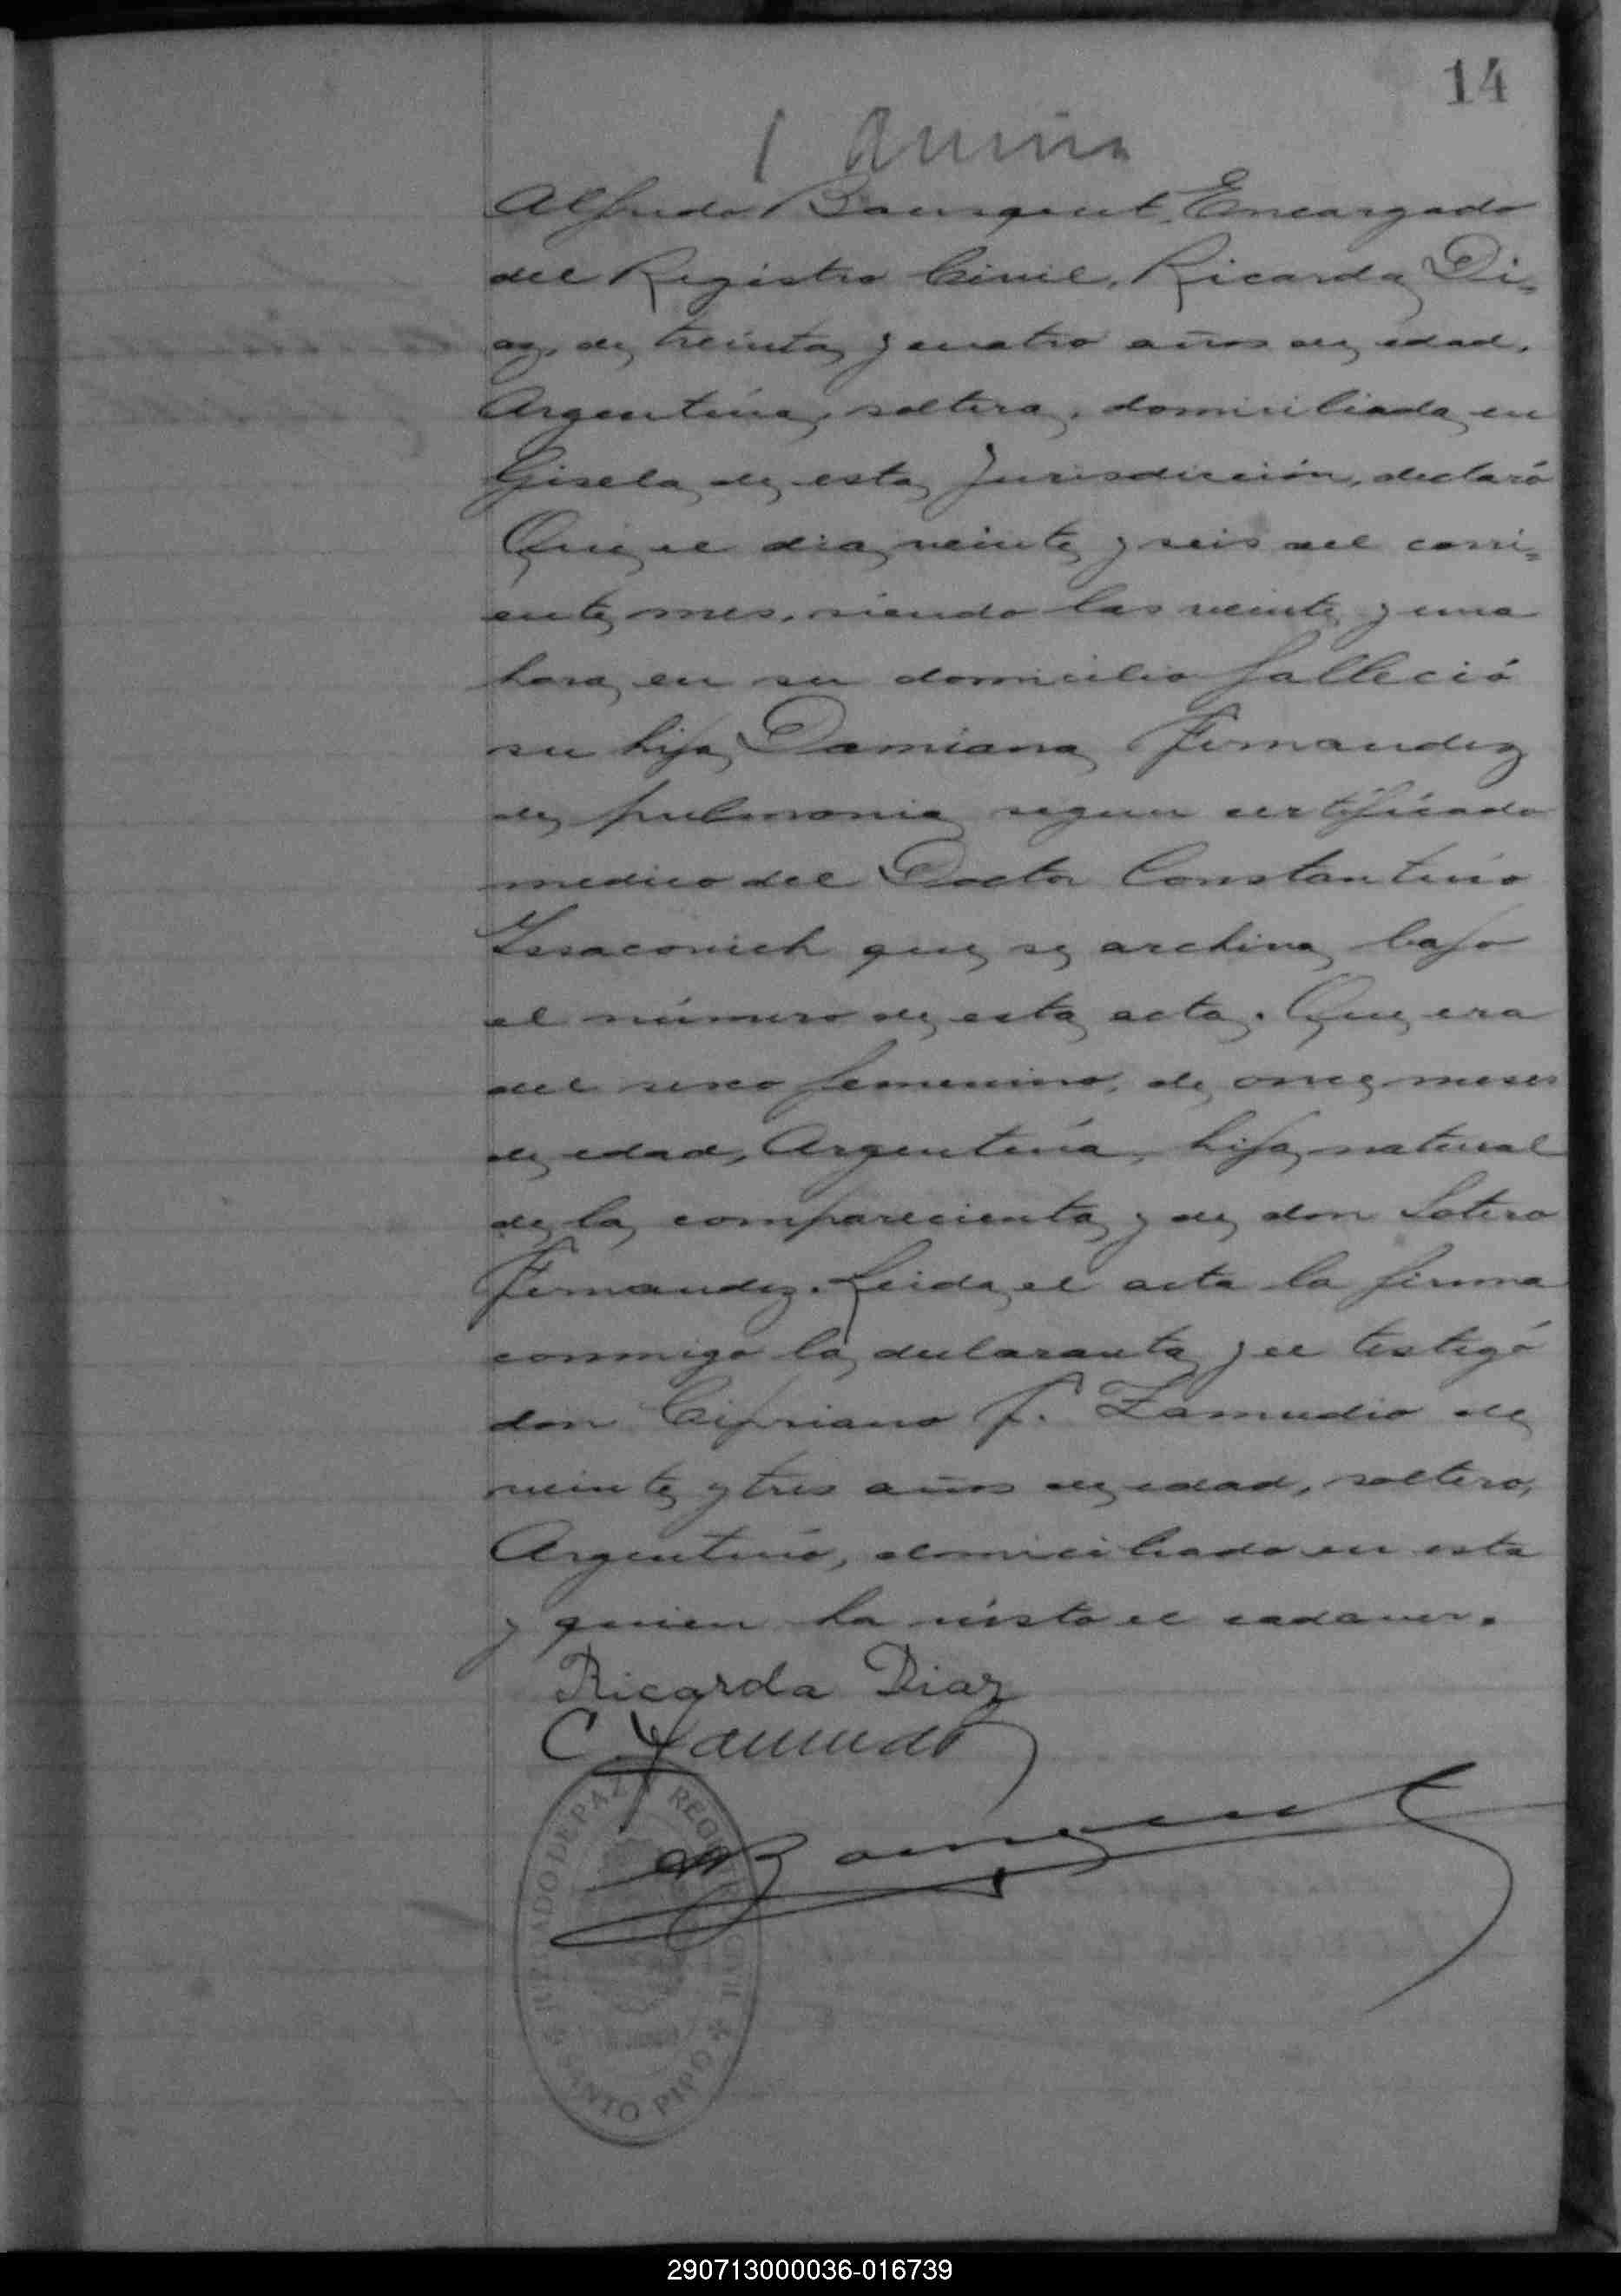 14
1
Alfredo Encargado
del Registro Civil, Ricarda Di=
az, de treinta y cuatro años de edad,
Argentina, soltera, domiciliada en
Gisela de esta Jurisdicción, declaró
Que el dia veinte y seis del corri=
ente mes, siendo las veinte y una
hora, en su domicilio falleció
su hija Damiana Fernandez
de pulmonia segun certificado
medico del Doctor Constantino
que se archiva bajo
el número de esta acta. Que era
del sexo femenino, de once meses
de edad, Argentina, hija natural
de la compareciente y de don Sotero
Fernandez. Leida el acta la firma
conmigo la declarante y el testigó
don Cipriano F. Zamudio de
veinte y tres años de edad, soltero,
Argentino, domiciliado en esta
y quien ha visto el cadaver.
Ricarda Diaz
C.
JUZGADO DE PAZ Y REGISTRO CIVIL
SANTO PIPO
290713000036-016739